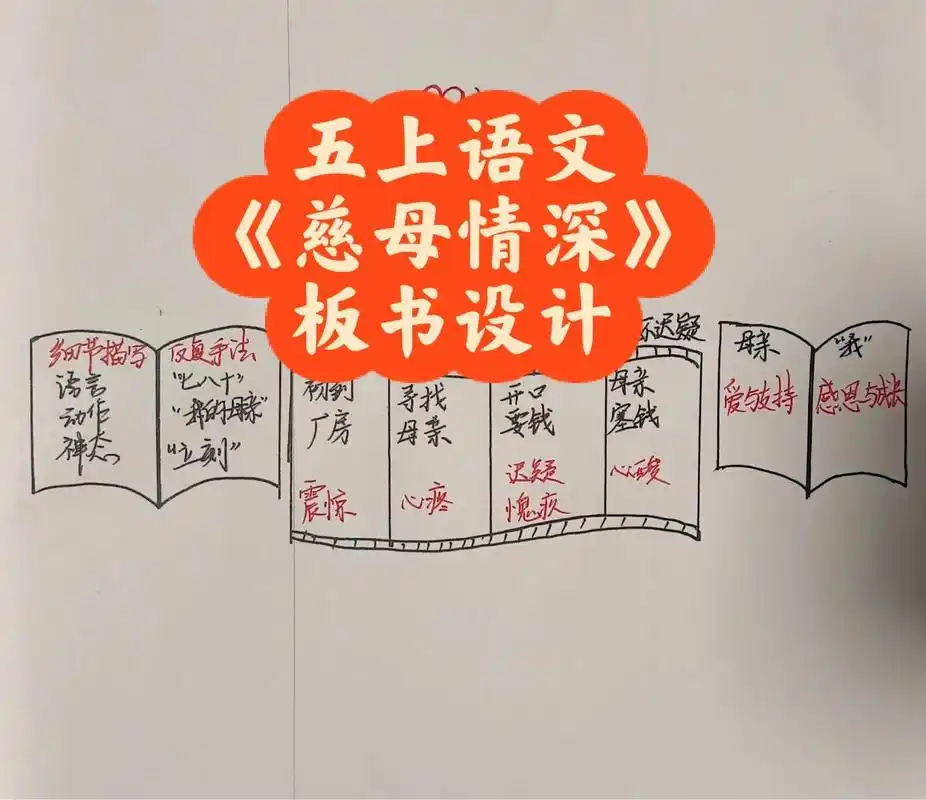 五上语文
《慈母情深》
板书设计
细节描写
语言
动作
神态
反复手法
“七八十”
“我的母亲”
“立刻”
初到
厂房
震惊
寻找
母亲
心疼
开口
要钱
迟疑
愧疚
不迟疑
母亲
塞钱
心酸
母亲
爱与支持
“我”
感恩与成长